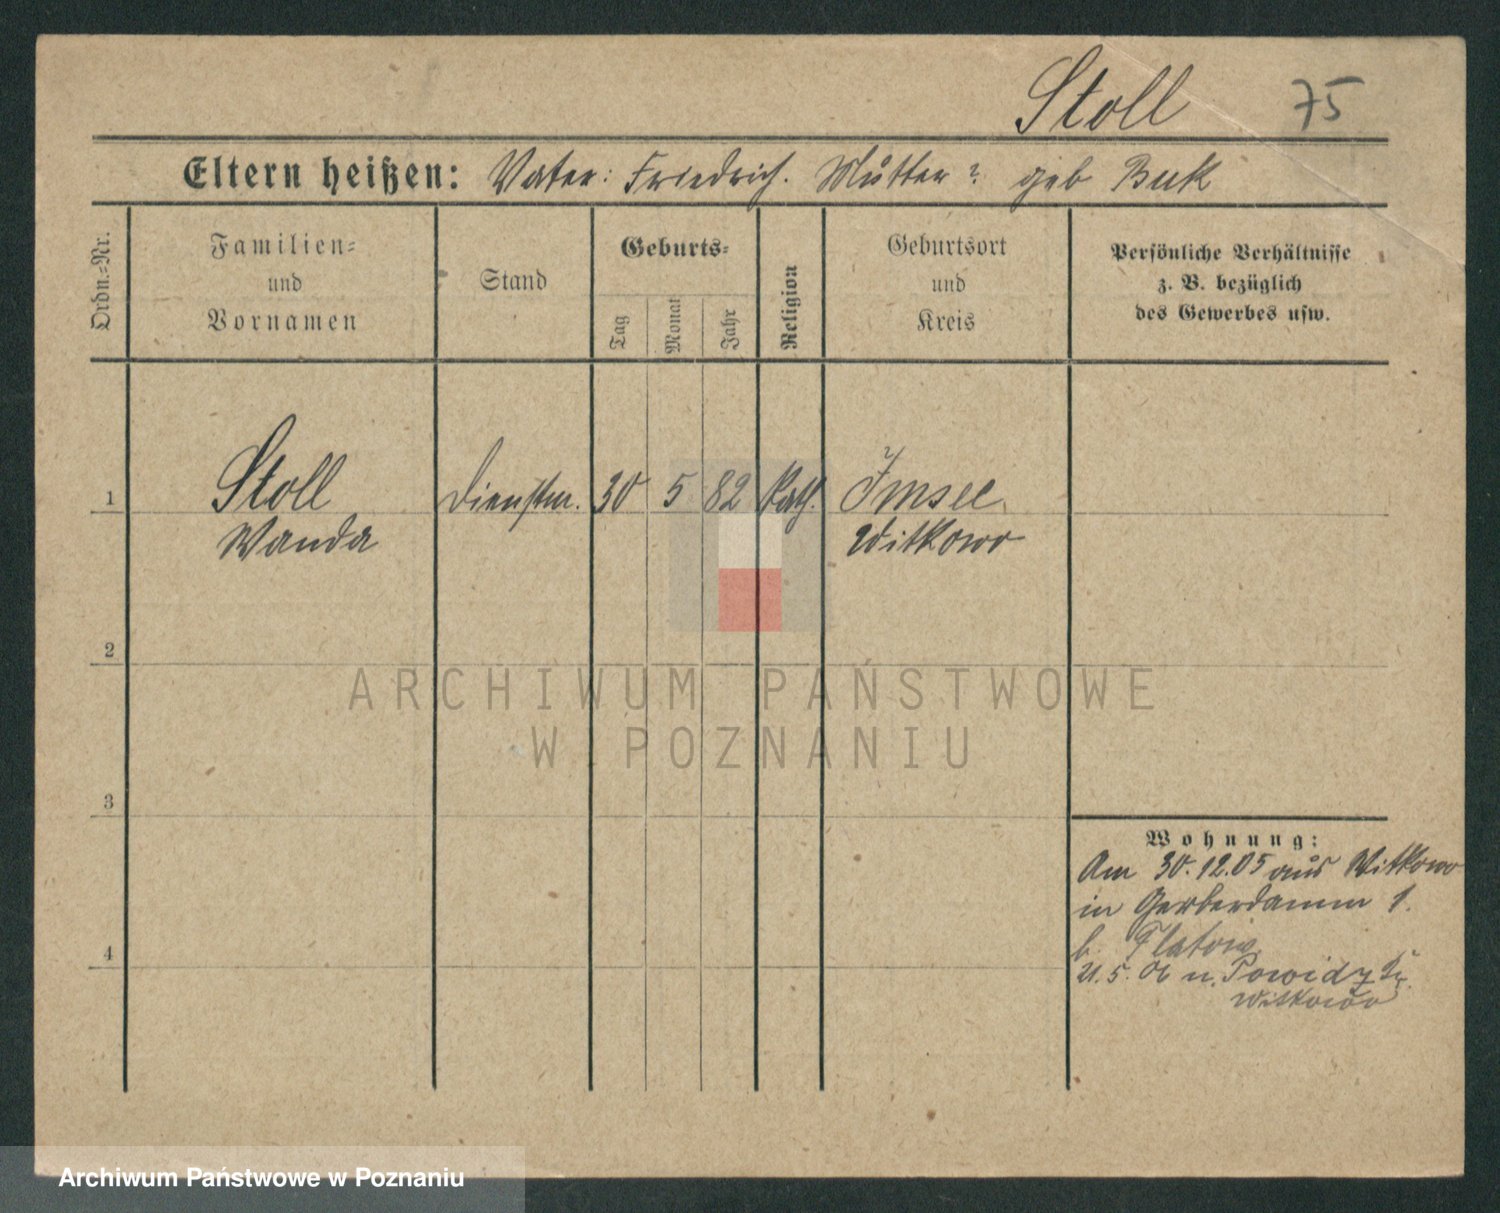 Stoll 75
Eltern heißen: Vater: Friedrich. Mutter? geb Buk
Ordn.=Nr.
Familien=
und
Vornamen
Stand
Geburts=
Tag
Monat
Jahr
Religion
Geburtsort
und
Kreis
Persönliche Verhältnisse
z. B. bezüglich
des Gewerbes usw.
1 Stoll Dienstm. 30 5 82 Kath. Imsee
Wanda Witkowo
2
ARCHIWUM PAŃSTWOWE
W POZNANIU
3
Wohnung:
Am 30.12.05 aus Witkowo
in Gerberdamm 1.
b. Flatow
4
21.5.06 n. Powidz
Witkowo
Archiwum Państwowe w Poznaniu